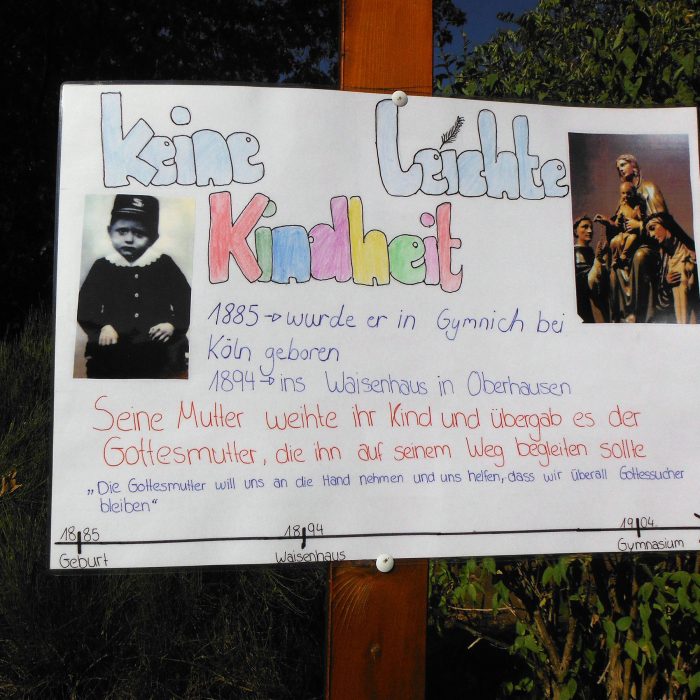 keine Leichte
Kindheit
1885 → wurde er in Gymnich bei
Köln geboren
1894 → ins Waisenhaus in Oberhausen
Seine Mutter weihte ihr Kind und übergab es der
Gottesmutter, die ihn auf seinem Weg begleiten sollte
„Die Gottesmutter will uns an die Hand nehmen und uns helfen, dass wir überall Gottessucher
bleiben“
1885 1894 1904
Geburt Waisenhaus Gymnasium